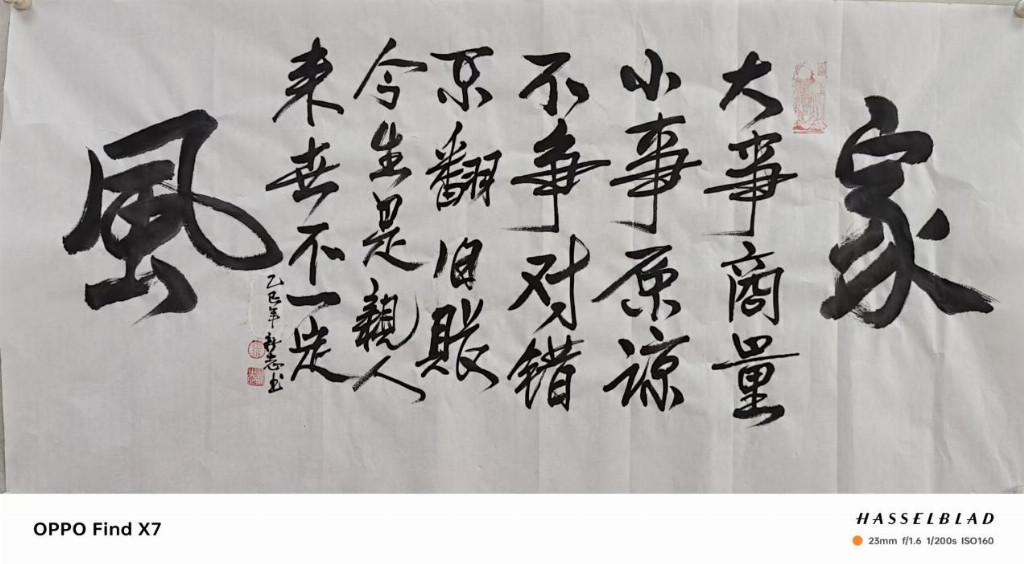 家
大事商量
小事原谅
不争对错
不翻旧账
今生是親人
来世不一定
風
乙巳年
书
OPPO Find X7
HASSELBLAD
23mm f/1.6 1/200s ISO160